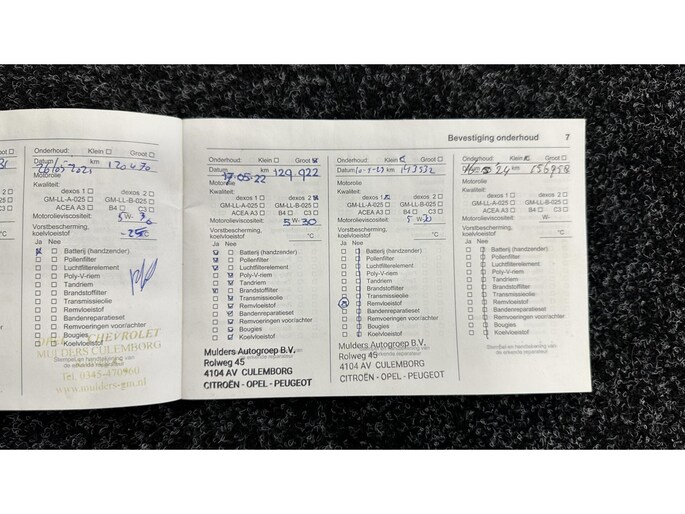 Bevestiging onderhoud 7
Onderhoud: Klein Groot
Datum 26/05-2021 km 120.470
Motorolie
Kwaliteit:
dexos 1 dexos 2
GM-LL-A-025 GM-LL-B-025
ACEA A3 B4 C3
Motorolieviscositeit: 5 W- 30
Vorstbescherming,
koelvloeistof -25 °C
Ja Nee
Batterij (handzender)
Pollenfilter
Luchtfilterelement
Poly-V-riem
Tandriem
Brandstoffilter
Transmissieolie
Remvloeistof
Bandenreparatieset
Remvoeringen voor/achter
Bougies
Koelvloeistof
CHEVROLET
MULDERS CULEMBORG
Stempel en handtekening van
de erkende reparateur
Tel. 0345-470960
www.mulders-gm.nl
Onderhoud: Klein Groot
Datum 17-05-22 km 129.922
Motorolie
Kwaliteit:
dexos 1 dexos 2
GM-LL-A-025 GM-LL-B-025
ACEA A3 B4 C3
Motorolieviscositeit: 5 W- 30
Vorstbescherming,
koelvloeistof °C
Ja Nee
Batterij (handzender)
Pollenfilter
Luchtfilterelement
Poly-V-riem
Tandriem
Brandstoffilter
Transmissieolie
Remvloeistof
Bandenreparatieset
Remvoeringen voor/achter
Bougies
Koelvloeistof
Mulders Autogroep B.V.
Rolweg 45
4104 AV CULEMBORG
CITROËN - OPEL - PEUGEOT
Onderhoud: Klein Groot
Datum km 143532
Motorolie
Kwaliteit:
dexos 1 dexos 2
GM-LL-A-025 GM-LL-B-025
ACEA A3 B4 C3
Motorolieviscositeit: 5 W-
Vorstbescherming,
koelvloeistof °C
Ja Nee
Batterij (handzender)
Pollenfilter
Luchtfilterelement
Poly-V-riem
Tandriem
Brandstoffilter
Transmissieolie
Remvloeistof
Bandenreparatieset
Remvoeringen voor/achter
Bougies
Koelvloeistof
Mulders Autogroep B.V.
Rolweg 45
de erkende reparateur
4104 AV CULEMBORG
CITROËN - OPEL - PEUGEOT
Onderhoud: Klein Groot
24 km
Motorolie
Kwaliteit:
dexos 1 dexos 2
GM-LL-A-025 GM-LL-B-025
ACEA A3 B4 C3
Motorolieviscositeit: W-
Vorstbescherming,
koelvloeistof °C
Ja Nee
Batterij (handzender)
Pollenfilter
Luchtfilterelement
Poly-V-riem
Tandriem
Brandstoffilter
Transmissieolie
Remvloeistof
Bandenreparatieset
Remvoeringen voor/achter
Bougies
Koelvloeistof
Stempel en handtekening van
de erkende reparateur